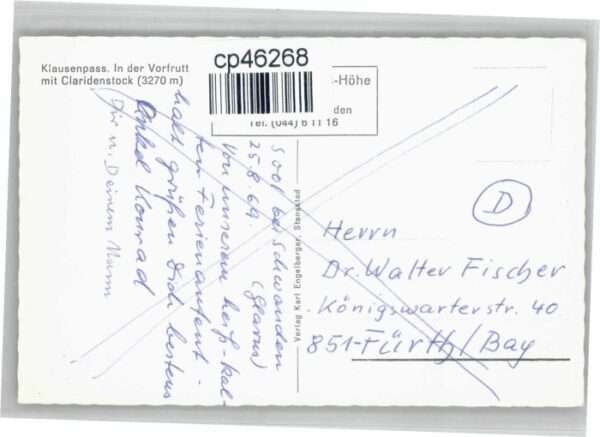 Klausenpass. In der Vorfrutt
mit Claridenstock (3270 m)
cp46268
-Höhe
den
Tel. (044) 6 11 16
Sool bei Schwanden
(Glarus)
25.8.69.
Von unserem heiß-kal-
ten Ferienaufent-
halt grüßen Dich bestens
Onkel Konrad
Dir u. Deinem Mann
Verlag Karl Engelberger, Stansstad
D
Herrn
Dr. Walter Fischer
Königswarterstr. 40
851-Fürth/Bay